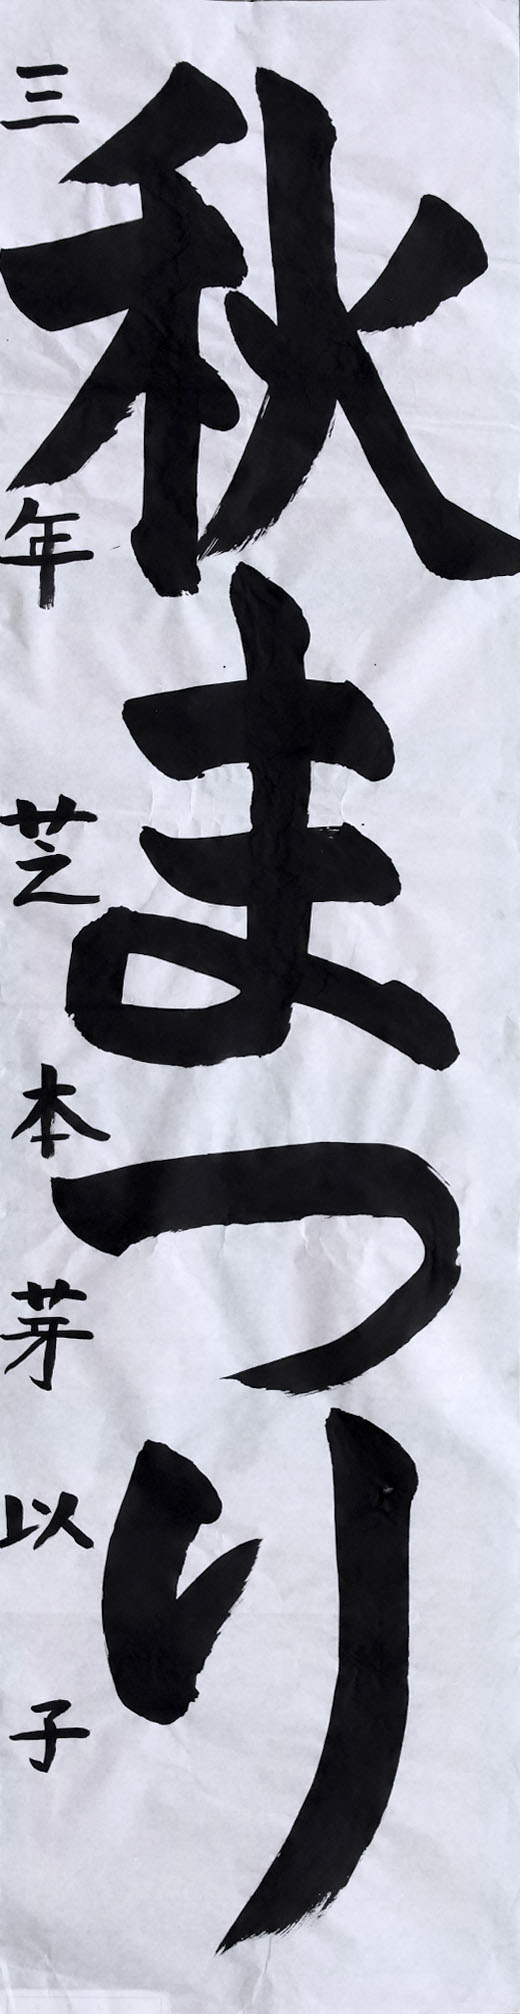 秋まつり
三年 芝本芽以子